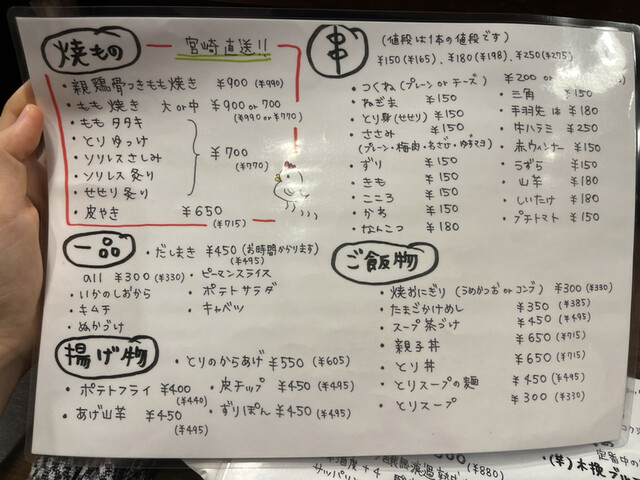 焼もの
宮崎直送!!
・親鶏骨つきもも焼き ¥900 (¥990)
・もも焼き 大or中 ¥900 or 700
(¥990 or ¥770)
・ももタタキ
・とりゆっけ
・ソリレスさしみ
・ソリレス炙り
・せせり炙り
¥700
(¥770)
・皮やき ¥650
(¥715)
一品
・だしまき ¥450 (お時間かかります)
(¥495)
all ¥300 (¥330)
・ピーマンスライス
・いかのしおから
・ポテトサラダ
・キムチ
・キャベツ
・ぬかづけ
揚げ物
・とりのからあげ ¥550 (¥605)
・ポテトフライ ¥400
(¥440)
・皮チップ ¥450 (¥495)
・あげ山芋 ¥450
(¥495)
・ずりぽん ¥450 (¥495)
串
(値段は1本の値段です)
¥150 (¥165)、¥180 (¥198)、¥250 (¥275)
・つくね (プレーン or チーズ) ¥200 or
・ねぎま ¥150
・とり身 (せせり) ¥150
・ささみ ¥150
(プレーン・梅肉・わさび・ゆずマヨ)
・ずり ¥150
・きも ¥150
・こころ ¥150
・かわ ¥150
・なんこつ ¥180
・三角 ¥150
・手羽先 は ¥180
・牛ハラミ ¥250
・赤ウィンナー ¥150
・うずら ¥150
・山芋 ¥180
・しいたけ ¥180
・プチトマト ¥150
ご飯物
・焼おにぎり (うめかつお or コンブ) ¥300 (¥330)
・たまごかけめし ¥350 (¥385)
・スープ茶づけ ¥450 (¥495)
・親子丼 ¥650 (¥715)
・とり丼 ¥650 (¥715)
・とりスープの麺 ¥450 (¥495)
・とりスープ ¥300 (¥330)
(¥880)
定番中の